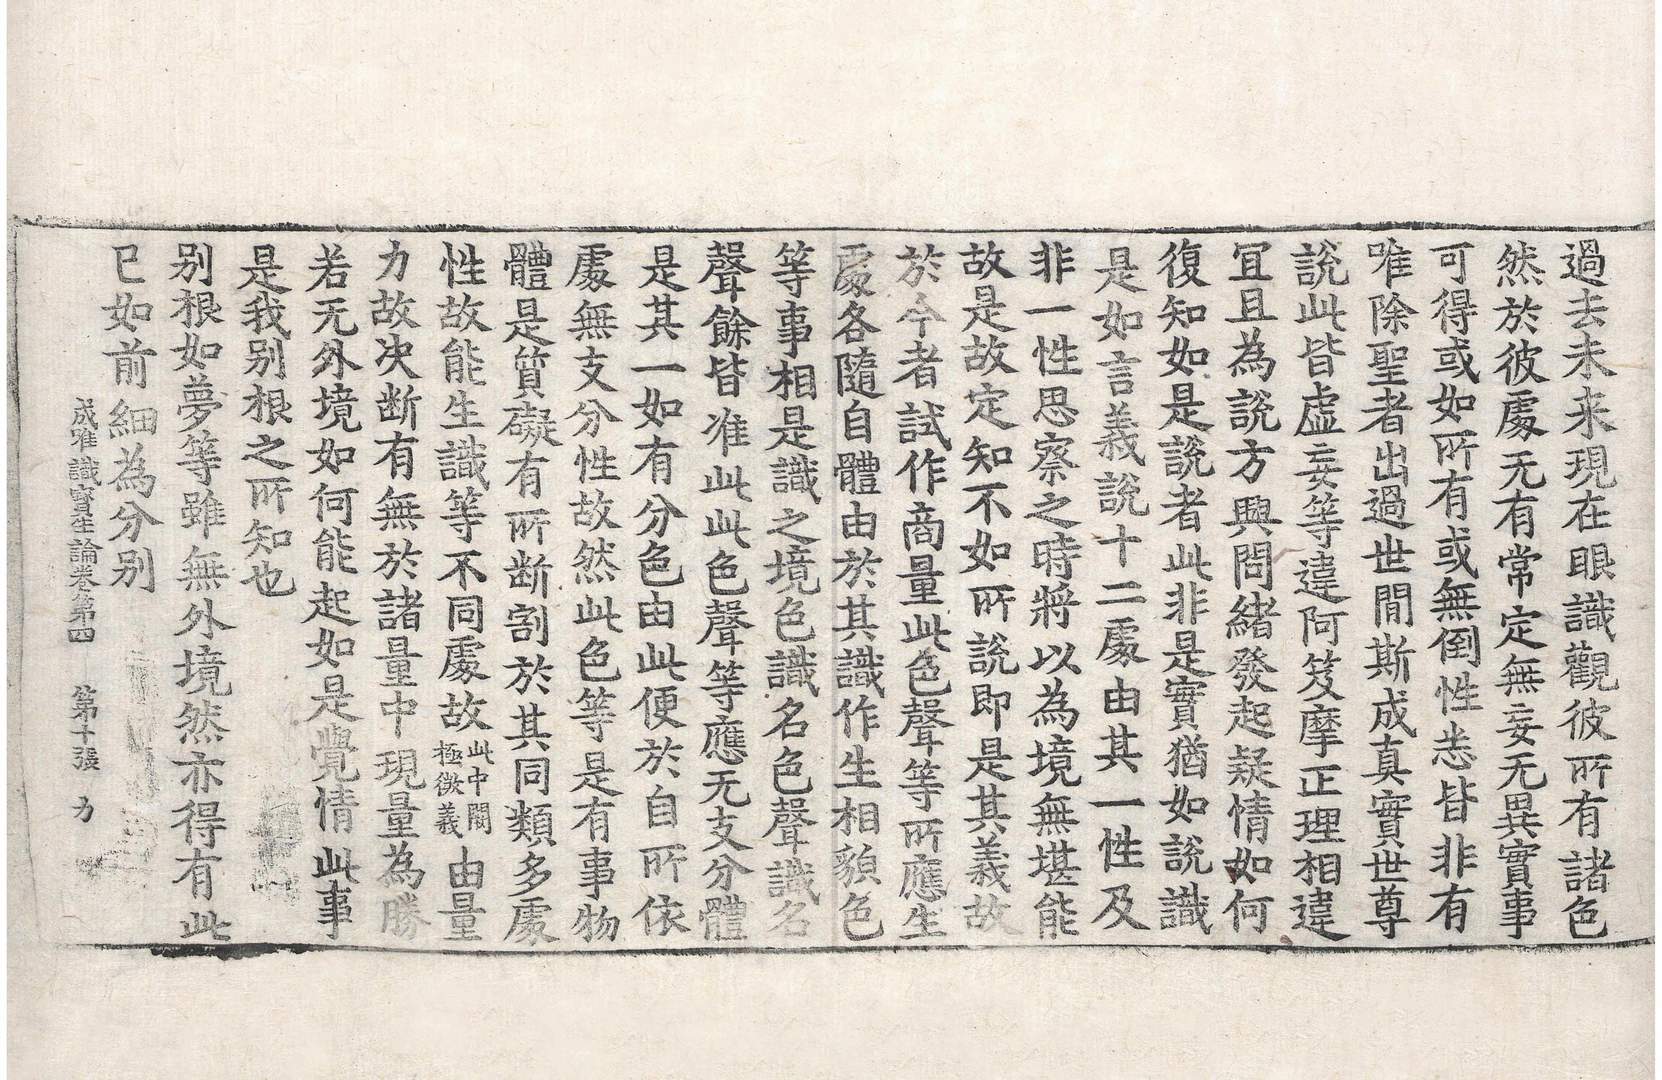 過去未来現在眼識觀彼所有諸色
然於彼處无有常定無妄无異實事
可得或如所有或無倒性悉皆非有
唯除聖者出過世閒斯成真實世尊
說此皆虛妄等違阿笈摩正理相違
宜且為說方興問緒發起疑情如何
復知如是說者此非是實猶如說識
是如言義說十二處由其一性及
非一性思察之時將以為境無堪能
故是故定知不如所說即是其義故
於今者試作商量此色聲等所應生
處各隨自體由於其識作生相貌色
等事相是識之境色識名色聲識名
聲餘皆准此此色聲等應无支分體
是其一如有分色由此便於自所依
處無支分性故然此色等是有事物
體是質礙有所斷割於其同類多處
性故能生識等不同處故此中闕極微義由量
力故決斷有無於諸量中現量為勝
若无外境如何能起如是覺情此事
是我別根之所知也
別根如夢等雖無外境然亦得有此
已如前細為分別
成唯識寶生論卷第四 第十張 力